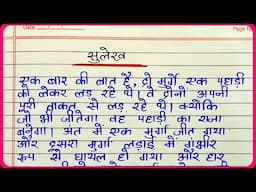 सुलेख
एक बार की बात है, दो मुर्गे एक पहाड़ी
को लेकर लड़ रहे थे। वे दोनों अपनी
पूरी ताकत से लड़ रहे थे। क्योंकि
जो भी जीतेगा वह पहाड़ी का राजा
बनेगा। अंत में एक मुर्गा जीत गया
और दूसरा मुर्गा लड़ाई में गंभीर
रूप से घायल हो गया और हार